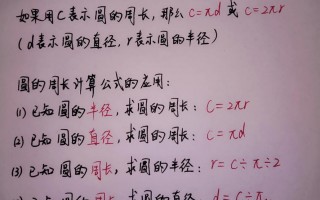 如果用C表示圆的周长，那么C=πd或C=2πr
（d表示圆的直径，r表示圆的半径）
圆的周长计算公式的应用：
(1) 已知圆的半径，求圆的周长：C=2πr
(2) 已知圆的直径，求圆的周长：C=πd
(3) 已知圆的周长，求圆的半径：r=C÷π÷2
求圆的直径：d=C÷π